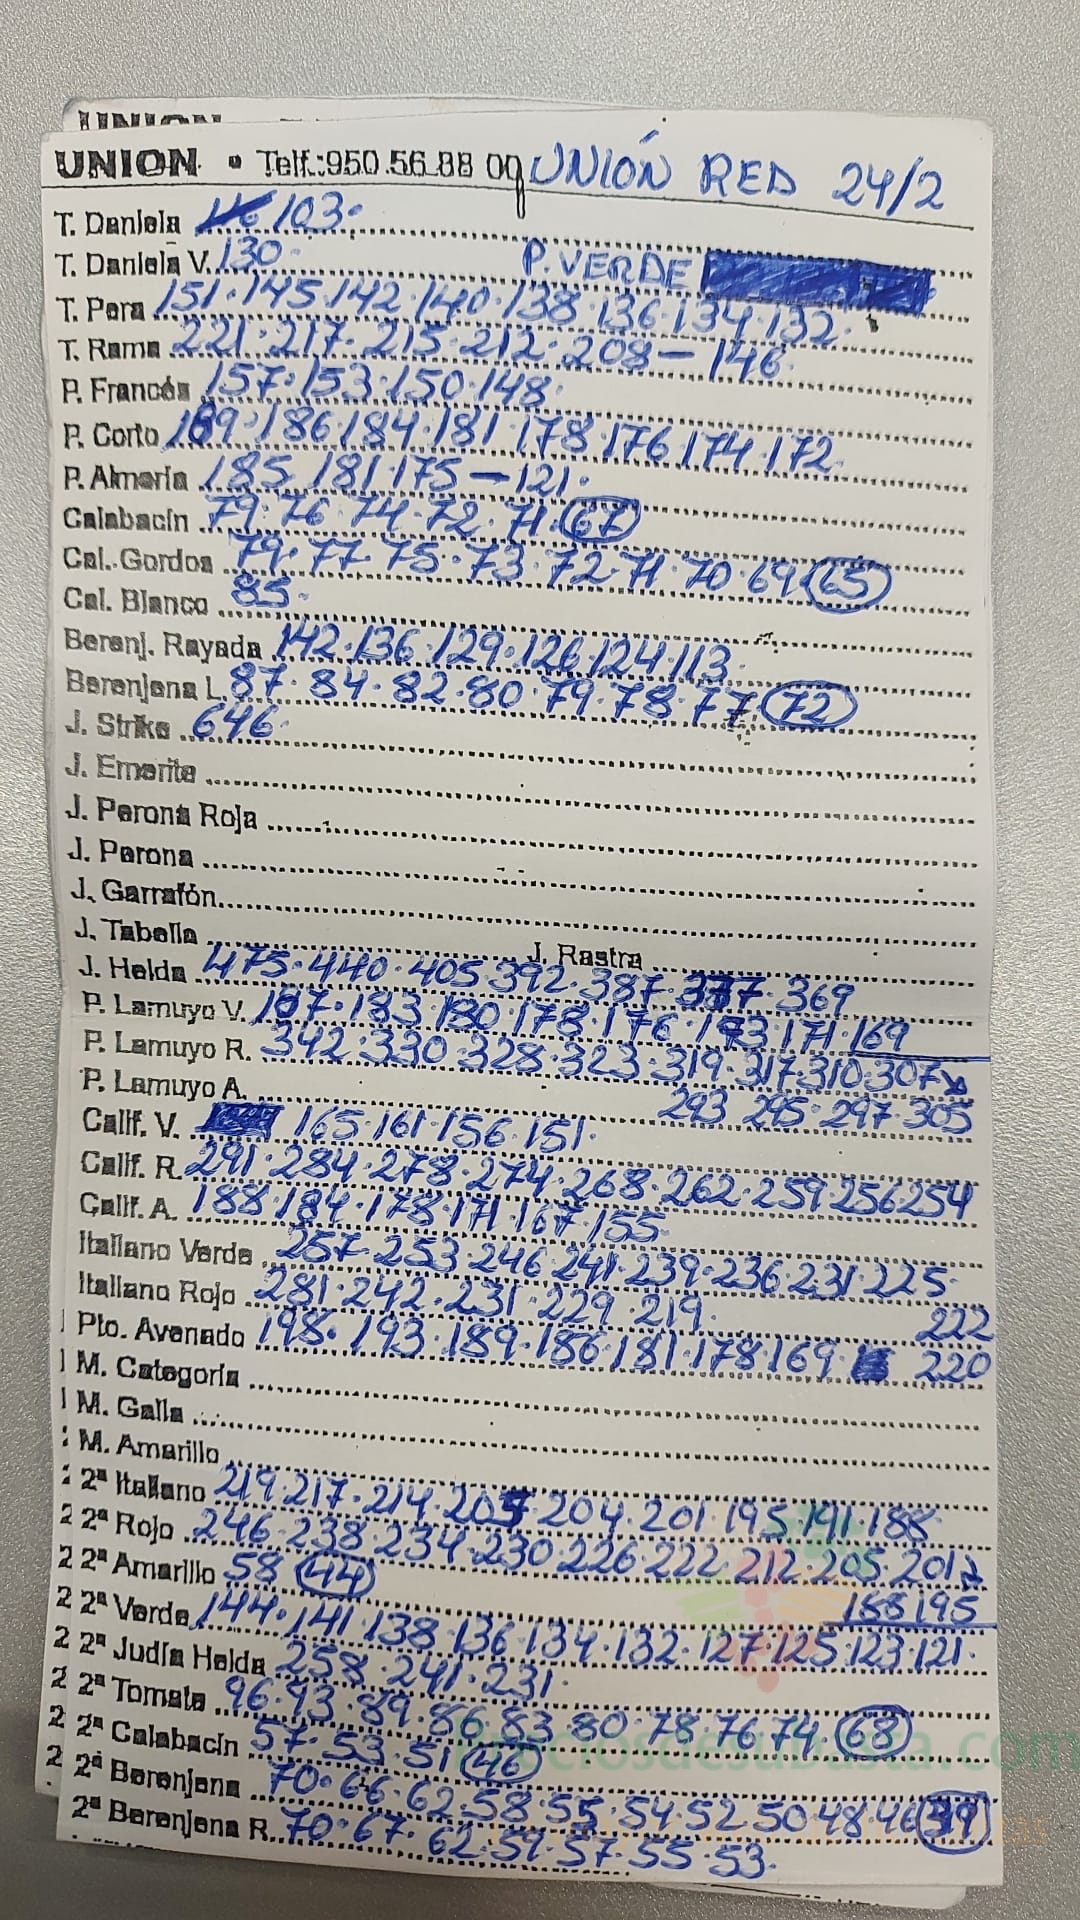 UNION
UNION • Telf.:950.56.88 00 UNIÓN RED 24/2
T. Daniela 103.
T. Daniela V. 130. P. VERDE
T. Pera 151.145.142.140.138.136.134.132.
T. Rama 221.217.215.212.208—146.
P. Francés 157.153.150.148.
P. Corto 189.186.184.181.178.176.174.172.
P. Almería 185.181.175—121.
Calabacín 79.76.74.72.71.67
Cal. Gordos 79.77.75.73.72.71.70.69.65
Cal. Blanco 85.
Berenj. Rayada 142.136.129.126.124.113.
Berenjena L. 87.84.82.80.79.78.77.72
J. Strike 646.
J. Emerite
J. Perona Roja
J. Perona
J. Garrafón
J. Tabella J. Rastra
J. Helda 475.440.405.392.387.377.369
P. Lamuyo V. 187.183.180.178.176.173.171.169
P. Lamuyo R. 342.330.328.323.319.317.310.307
P. Lamuyo A. 293.295.297.305
Calif. V. 165.161.156.151.
Calif. R. 291.284.278.274.268.262.259.256.254
Calif. A. 188.184.178.171.167.155.
Italiano Verde 257.253.246.241.239.236.231.225.
Italiano Rojo 281.242.231.229.219. 222
Pto. Avenado 198.193.189.186.181.178.169 220
M. Categoría
M. Galia
M. Amarillo
2ª Italiano 219.217.214.207.204.201.195.191.188
2ª Rojo 246.238.234.230.226.222.212.205.201
2ª Amarillo 58 44 188 195
2ª Verde 144.141.138.136.134.132.127.125.123.121.
2ª Judía Helda 258.241.231.
2ª Tomate 96.93.89.86.83.80.78.76.74.68
2ª Calabacín 57.53.51.46
2ª Berenjena 70.66.62.58.55.54.52.50.48.46.39
2ª Berenjena R. 70.67.62.59.57.55.53.
Preciosdesubasta.com